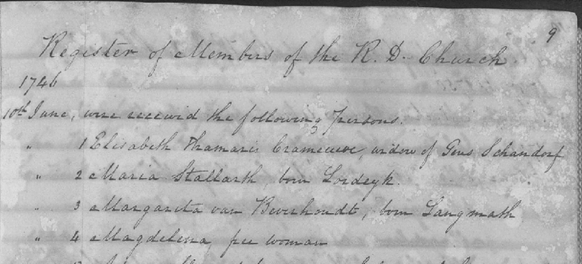 9
Register of Members of the R. D. Church.
1746
10th June, were received the following persons.
" 1 Elisabeth Thamaris widow of Gens Schandorf
" 2 Maria Stallarth born Lordeyk.
" 3 Margarita van Beverhoudt, born Langmath
" 4 Magdelena, free woman